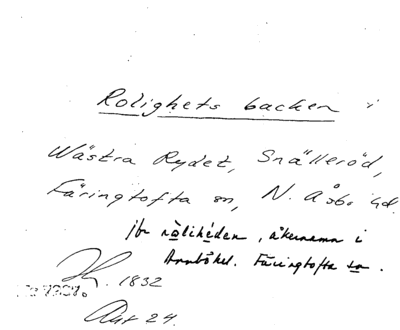 Rolighets backen i
Västra Rydet, Snälleröd,
Färingtofta sn, N. Åsbo hd.
jfr rolihéden, åkernamn i
Annbökel. Färingtofta sn.
1832
Akt 24.